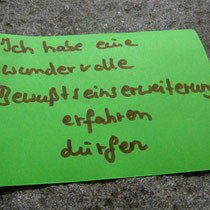 Ich habe eine
wundervolle
Bewußtseinserweiterung
erfahren
dürfen